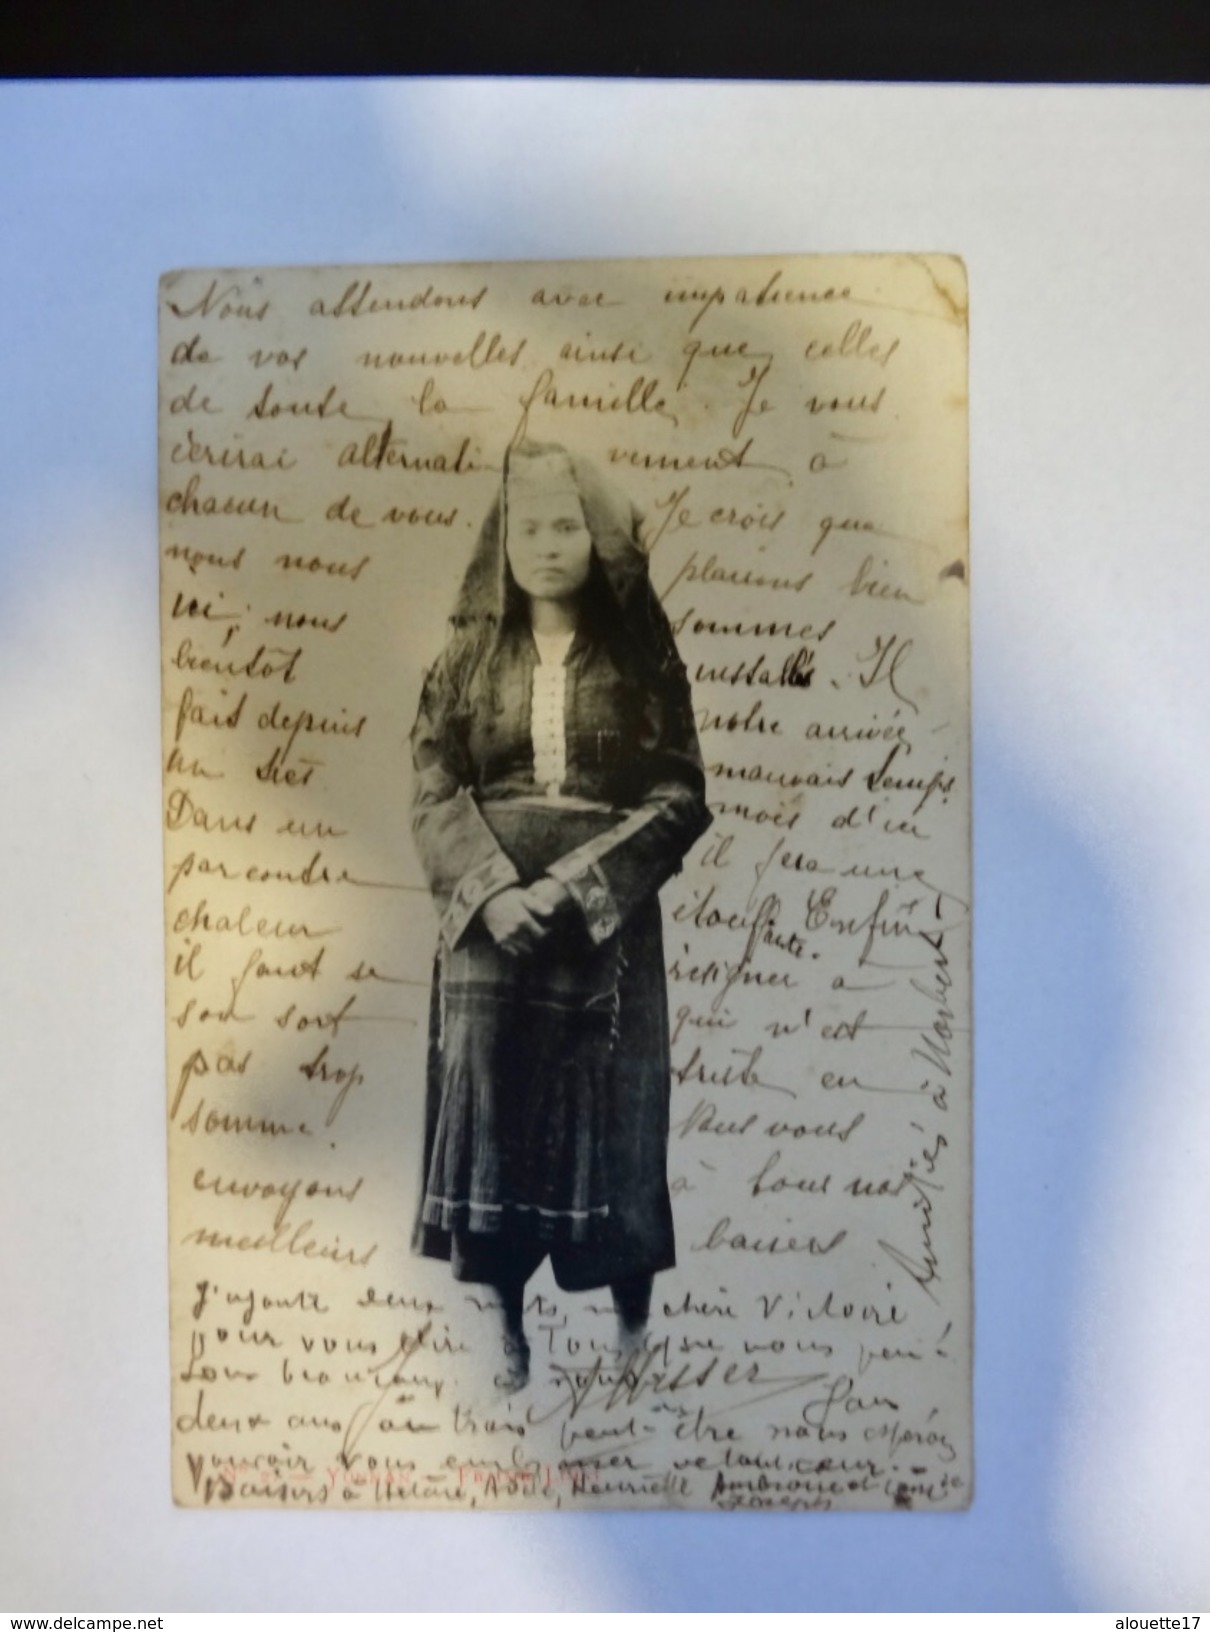 Nous attendons avec impatience
de vos nouvelles ainsi que celles
de toute la famille. Je vous
écrirai alternativement à
chacun de vous. Je crois que
nous nous plairons bien
ici, nous sommes
bientôt installés. Il
fait depuis notre arrivée
un très mauvais temps.
Dans un mois d'ici
par contre il fera une
chaleur étouffante. Enfin
il faut se résigner à
son sort qui n'est
pas trop triste en
somme. Nous vous
envoyons à tous nos
meilleurs baisers
Amitiés à Norbert
J'ajoute deux mots, ma chère Victoire
pour vous dire à Tous que nous
beaucoup à
dans
deux ans ou trois peut-être nous espérons
pouvoir vous embrasser
Baisers à Adèle, Henriette Ambroise et
Joseph
www.delcampe.net
alouette17